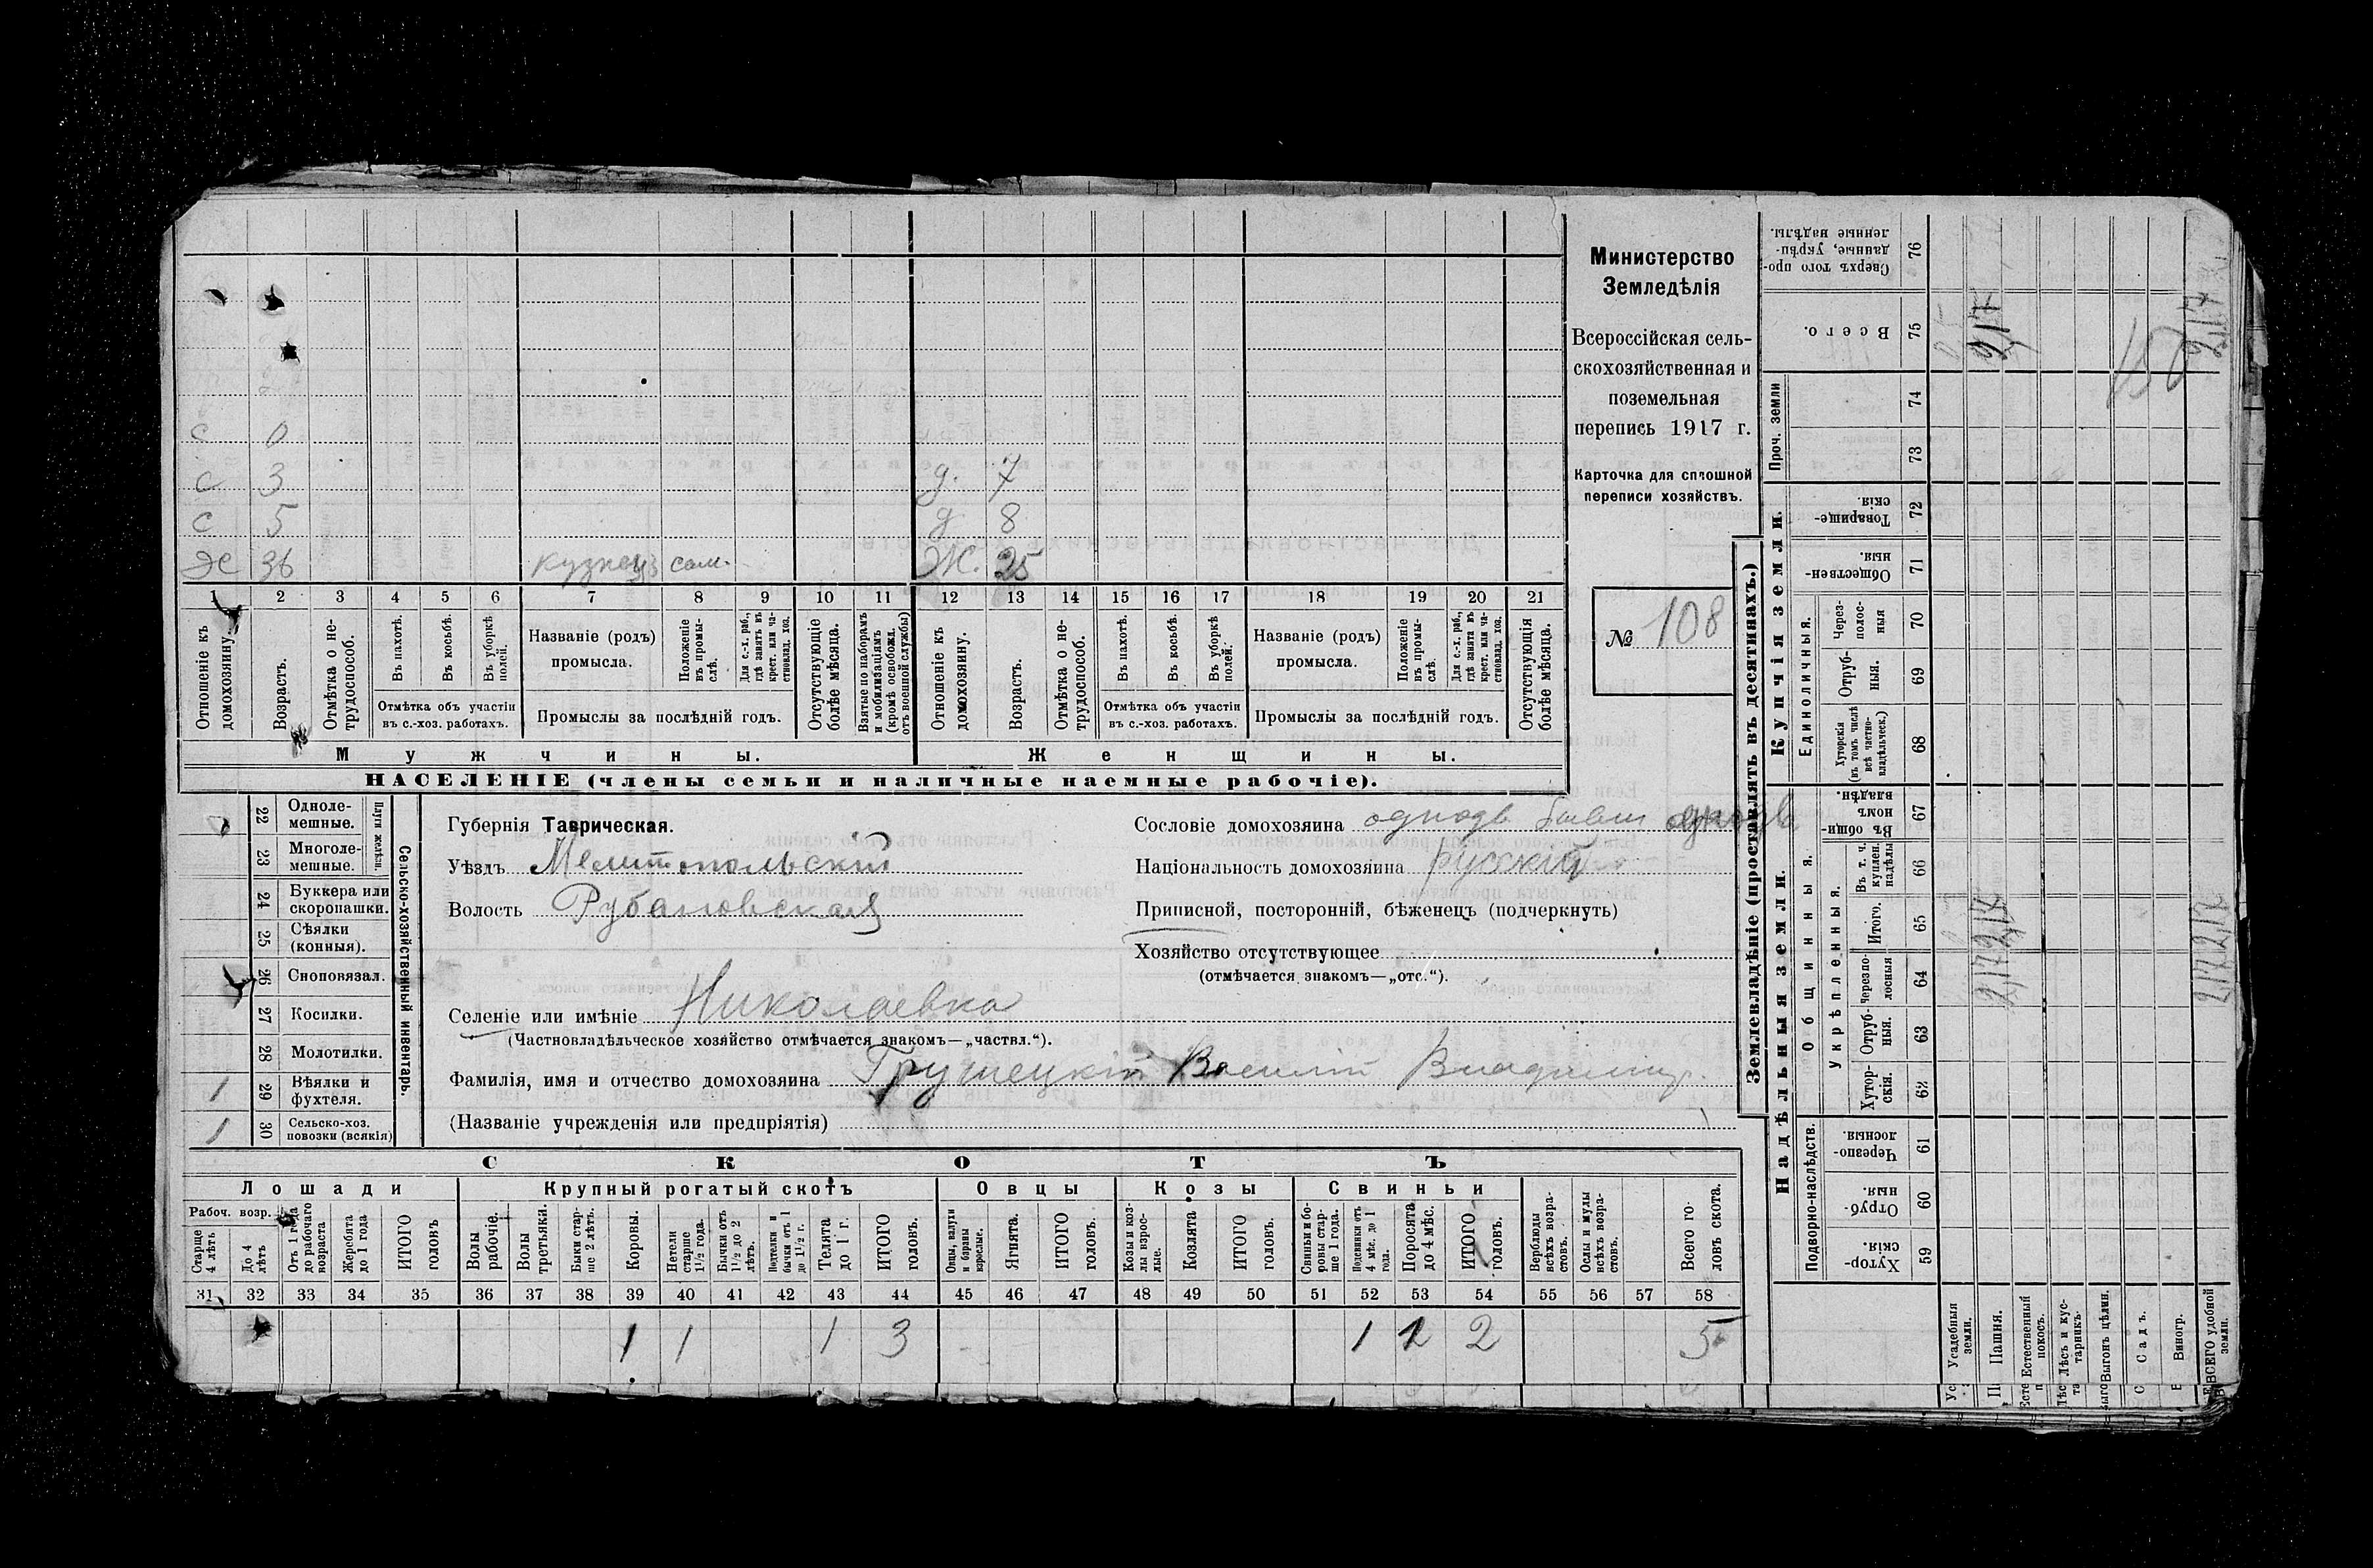 Министерство
Земледѣлія
Всероссійская сель-
скохозяйственная и
поземельная
перепись 1917 г.
Карточка для сплошной
переписи хозяйствъ.
№ 108
с 0
с 3
с 5
36 кузнецъ сам.
д. 7
д 8
Ж. 25
1 2 3 4 5 6 7 8 9 10 11 12 13 14 15 16 17 18 19 20 21
Отношеніе къ домохозяину.
Возрастъ.
Отмѣтка о не-трудоспособ.
Въ пахотѣ.
Въ косьбѣ.
Въ уборкѣ полей.
Отмѣтка объ участіи
въ с.-хоз. работахъ.
Названіе (родъ)
промысла.
Положеніе въ промы-слѣ.
Для с.-х. раб., гдѣ занятъ въ крест. или ча-стновлад. хоз.
Промыслы за послѣдній годъ.
Отсутствующіе болѣе мѣсяца.
Взятые по наборамъ и мобилизаціямъ (кромѣ освобожд. отъ военной службы)
Отношеніе къ домохозяину.
Возрастъ.
Отмѣтка о не-трудоспособ.
Въ пахотѣ.
Въ косьбѣ.
Въ уборкѣ полей.
Отмѣтка объ участіи
въ с.-хоз. работахъ.
Названіе (родъ)
промысла.
Положеніе въ промы-слѣ.
Для с.-х. раб., гдѣ занята въ крест. или ча-стновлад. хоз.
Промыслы за послѣдній годъ.
Отсутствующія болѣе мѣсяца.
Мужчины.
Женщины.
НАСЕЛЕНІЕ (члены семьи и наличные наемные рабочіе).
Сельско-хозяйственный инвентарь.
Плуги желѣзн.
22 Одноле-мешные.
23 Многоле-мешные.
24 Буккера или скоропашки.
25 Сѣялки (конныя).
26 Сноповязал.
27 Косилки.
28 Молотилки.
1 29 Вѣялки и фухтеля.
1 30 Сельско-хоз. повозки (всякія)
Губернія Таврическая.
Уѣздъ Мелитопольскій
Волость Рубановская
Сословіе домохозяина
Національность домохозяина русскій
Приписной, посторонній, бѣженецъ (подчеркнуть)
Хозяйство отсутствующее
(отмѣчается знакомъ—„отс.“).
Селеніе или имѣніе Николаевка
(Частновладѣльческое хозяйство отмѣчается знакомъ—„частвл.“).
Фамилія, имя и отчество домохозяина Грушецкій Василій Владимир.
(Названіе учрежденія или предпріятія)
СКОТЪ
Лошади Крупный рогатый скотъ Овцы Козы Свиньи
Рабоч. возр.
Старше 4 лѣтъ
До 4 лѣтъ
Отъ 1 года до рабочаго возраста
Жеребята до 1 года
ИТОГО головъ
Волы рабочіе.
Волы третьяки.
Быки стар-ше 2 лѣтъ.
Коровы.
Нетели старше 1½ года.
Бычки отъ 1½ до 2 лѣтъ.
Подтелки и бычки отъ 1 до 1½ г.
Телята до 1 г.
ИТОГО головъ.
Овцы, валухи и бараны взрослые.
Ягнята.
ИТОГО головъ.
Козы и коз-лы взрос-лые.
Козлята
ИТОГО головъ.
Свиньи и бо-ровы стар-ше 1 года.
Подсвинки отъ 4 мѣс. до 1 года.
Поросята до 4 мѣс.
ИТОГО головъ.
Верблюды всѣхъ возра-стовъ.
Ослы и мулы всѣхъ возра-стовъ.
Всего го-ловъ скота.
31 32 33 34 35 36 37 38 39 40 41 42 43 44 45 46 47 48 49 50 51 52 53 54 55 56 57 58
1 1 1 3 1 2 5
Землевладѣніе (проставлять въ десятинахъ.)
Надѣльныя земли.
Купчія земли.
Проч. земли
Сверхъ того про-данные, укрѣп-ленные надѣлы. 76
Всего. 75
74
73
Товарище-скія. 72
Обществен-ныя. 71
Единоличныя.
Через-полос-ныя 70
Отруб-ныя. 69
Хуторскія (въ томъ числѣ всѣ частно-владѣльческ.) 68
Общинныя.
Въ общин-номъ владѣн. 67
Укрѣпленныя.
Въ т. ч. куплен. надѣлы 66
Итого. 65
Черезпо-лосныя 64
Отруб-ныя. 63
Хутор-скія. 62
Подворно-наслѣдств.
Черезпо-лосныя. 61
Отруб-ныя. 60
Хутор-скія. 59
Усадебныя земли.
Пашня.
Естественный покосъ.
Лѣсъ и кус-тарникъ.
Выгонъ цѣлин.
Садъ.
Виногр.
ВСЕГО удобной земли.
2,17
2,17
2,17
2,17